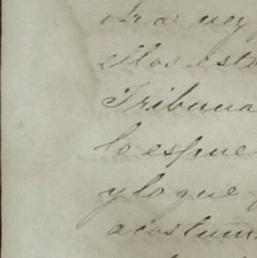 ellos est
Tribuna
lo espue
y lo que
acostum